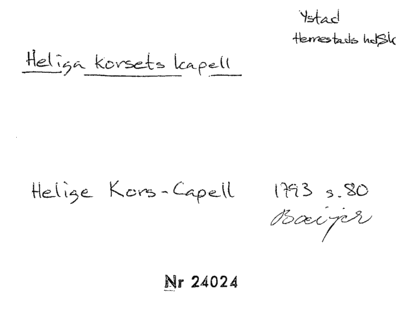 Ystad
Herrestads hd Sk
Heliga korsets kapell
Helige Kors-Capell 1793 s. 80
Baeijer
Nr 24024